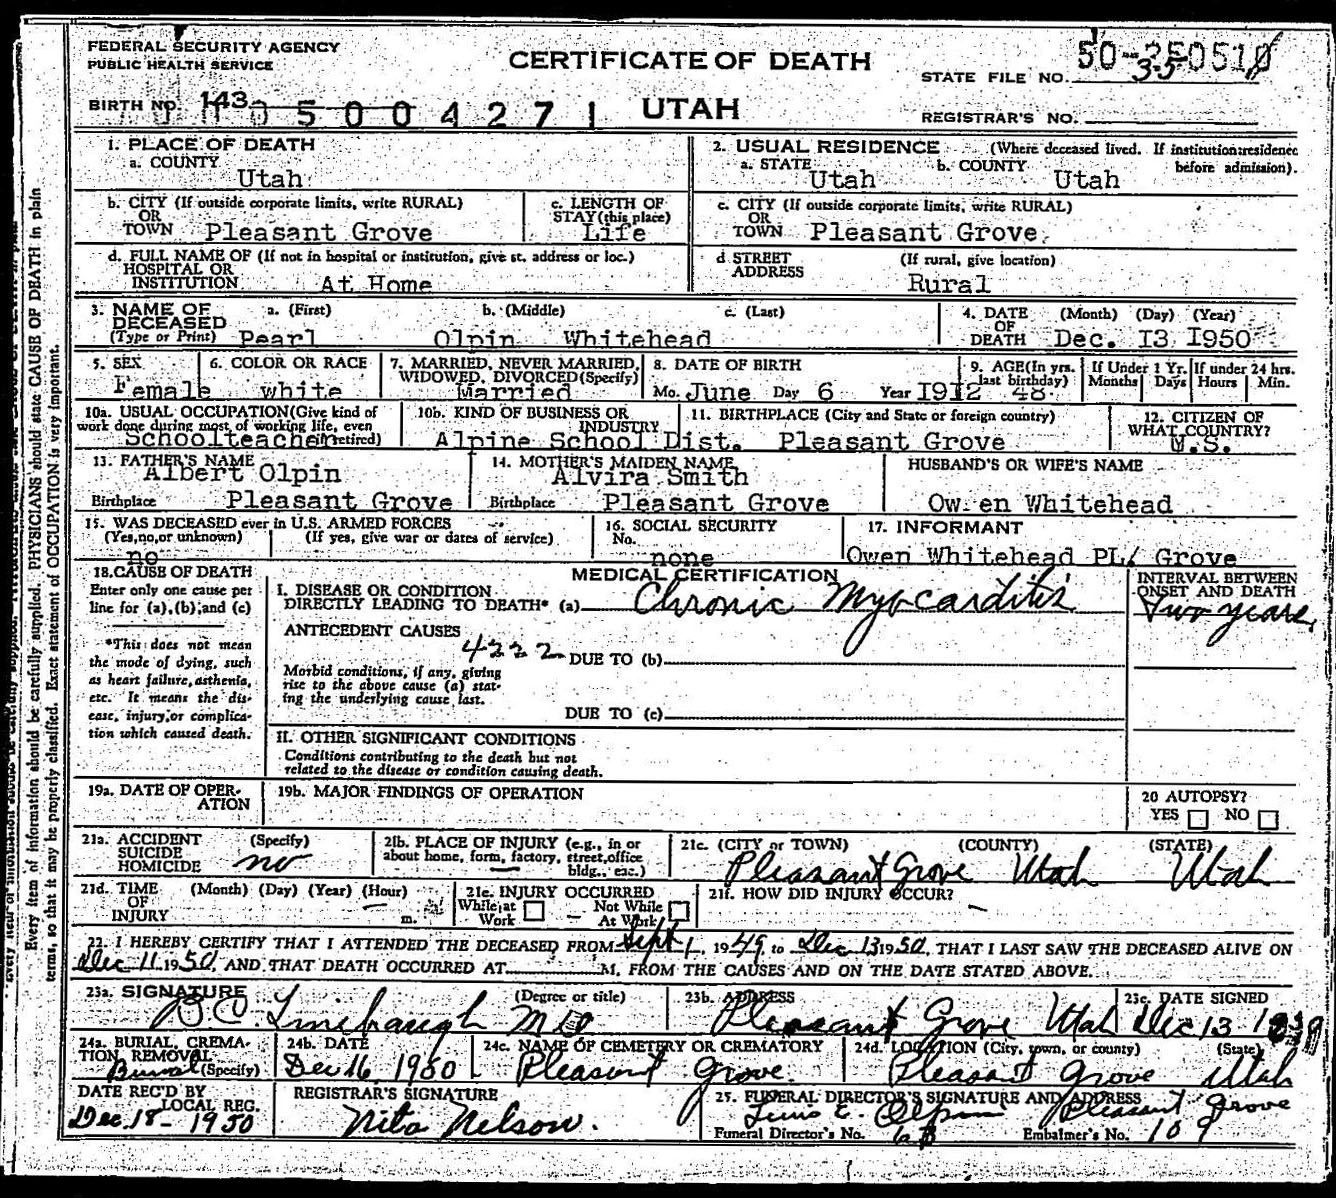 FEDERAL SECURITY AGENCY
PUBLIC HEALTH SERVICE
CERTIFICATE OF DEATH
UTAH
STATE FILE NO.
REGISTRAR'S NO.
BIRTH NO. 143
5004271
1. PLACE OF DEATH
a. COUNTY
Utah
2. USUAL RESIDENCE (Where deceased lived. If institution: residence before admission).
a. STATE Utah b. COUNTY Utah
b. CITY (If outside corporate limits, write RURAL)
OR
TOWN Pleasant Grove
c. LENGTH OF
STAY (this place)
Life
c. CITY (If outside corporate limits, write RURAL)
OR
TOWN Pleasant Grove
d. FULL NAME OF (If not in hospital or institution, give st. address or loc.)
HOSPITAL OR
INSTITUTION At Home
d STREET (If rural, give location)
ADDRESS Rural
3. NAME OF DECEASED a. (First) b. (Middle) c. (Last)
(Type or Print) Pearl Olpin Whitehead
4. DATE OF DEATH (Month) (Day) (Year)
Dec. I3 I950
5. SEX
Female
6. COLOR OR RACE
white
7. MARRIED, NEVER MARRIED,
WIDOWED, DIVORCED (Specify)
Married
8. DATE OF BIRTH
Mo. June Day 6 Year I9I2
9. AGE (In yrs. last birthday)
48
If Under 1 Yr.
Months Days
If under 24 hrs.
Hours Min.
10a. USUAL OCCUPATION (Give kind of
work done during most of working life, even
Schoolteacher retired)
10b. KIND OF BUSINESS OR
INDUSTRY
Alpine School Dist.
11. BIRTHPLACE (City and State or foreign country)
Pleasant Grove
12. CITIZEN OF
WHAT COUNTRY?
U.S.
13. FATHER'S NAME
Albert Olpin
Birthplace Pleasant Grove
14. MOTHER'S MAIDEN NAME
Alvira Smith
Birthplace Pleasant Grove
HUSBAND'S OR WIFE'S NAME
Ow en Whitehead
15. WAS DECEASED ever in U.S. ARMED FORCES
(Yes, no, or unknown) (If yes, give war or dates of service)
no
16. SOCIAL SECURITY
No.
none
17. INFORMANT
Owen Whitehead PL/ Grove
18. CAUSE OF DEATH
Enter only one cause per
line for (a), (b), and (c)
*This does not mean
the mode of dying, such
as heart failure, asthenia,
etc. It means the dis-
ease, injury, or complica-
tion which caused death.
MEDICAL CERTIFICATION
I. DISEASE OR CONDITION
DIRECTLY LEADING TO DEATH* (a) Chronic Myocarditis
INTERVAL BETWEEN
ONSET AND DEATH
two years
ANTECEDENT CAUSES
4222
DUE TO (b)
Morbid conditions, if any, giving
rise to the above cause (a) stat-
ing the underlying cause last.
DUE TO (c)
II. OTHER SIGNIFICANT CONDITIONS
Conditions contributing to the death but not
related to the disease or condition causing death.
19a. DATE OF OPER-
ATION
19b. MAJOR FINDINGS OF OPERATION
20 AUTOPSY?
YES NO
21a. ACCIDENT (Specify)
SUICIDE
HOMICIDE no
21b. PLACE OF INJURY (e.g., in or
about home, form, factory, street, office
bldg., etc.)
21c. (CITY or TOWN) (COUNTY) (STATE)
Pleasant Grove Utah Utah
21d. TIME (Month) (Day) (Year) (Hour)
OF
INJURY m.
21e. INJURY OCCURRED
While at Work Not While At Work
21f. HOW DID INJURY OCCUR?
22. I HEREBY CERTIFY THAT I ATTENDED THE DECEASED FROM Sept 1, 1949 to Dec 13 1950, THAT I LAST SAW THE DECEASED ALIVE ON
Dec 11 1950, AND THAT DEATH OCCURRED AT M. FROM THE CAUSES AND ON THE DATE STATED ABOVE.
23a. SIGNATURE (Degree or title)
B C Linebaugh MD
23b. ADDRESS
Pleasant Grove Utah
23c. DATE SIGNED
Dec 13
24a. BURIAL, CREMA-
TION, REMOVAL
Burial (Specify)
24b. DATE
Dec 16, 1950
24c. NAME OF CEMETERY OR CREMATORY
Pleasant Grove
24d. LOCATION (City, town, or county) (State)
Pleasant Grove Utah
DATE REC'D BY
LOCAL REG.
Dec. 18 - 1950
REGISTRAR'S SIGNATURE
Nita Nelson.
25. FUNERAL DIRECTOR'S SIGNATURE AND ADDRESS
Olpin Pleasant Grove
Funeral Director's No. Embalmer's No. 109
Every item of information should be carefully supplied. PHYSICIANS should state CAUSE OF DEATH in plain
terms, so that it may be properly classified. Exact statement of OCCUPATION is very important.